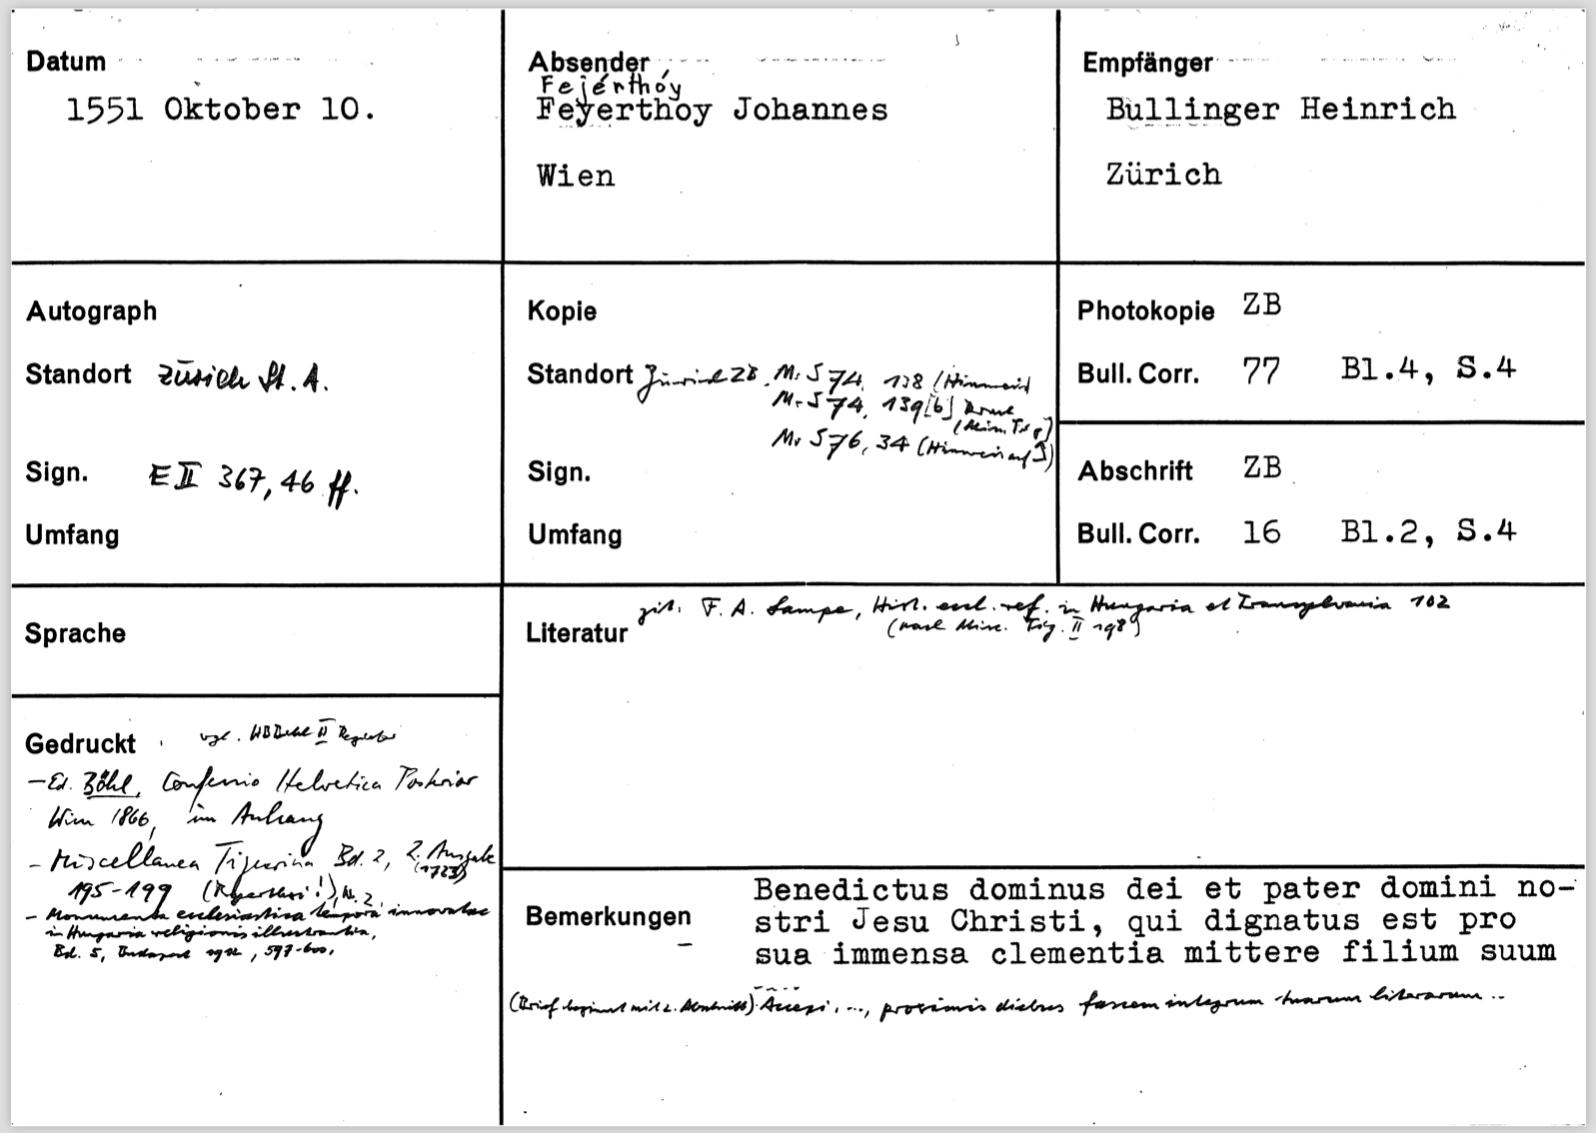 Datum
1551 Oktober 10.
Absender
Fejérthóy
Feyerthoy Johannes
Wien
Empfänger
Bullinger Heinrich
Zürich
Autograph
Standort Zürich St. A.
Sign. E II 367, 46 ff.
Umfang
Kopie
Standort Zürich ZB. Ms S 74, 138 (Hinweis)
Ms S 74, 139[b] Druck
(Misc. Tig.)
Ms S 76, 34 (Hinweis auf J)
Sign.
Umfang
Photokopie ZB
Bull. Corr. 77 Bl.4, S.4
Abschrift ZB
Bull. Corr. 16 Bl.2, S.4
Sprache
Literatur zit. F. A. Lampe, Hist. eccl. ref. in Hungaria et Transylvania 102
(nach Misc. Tig. II 198)
Gedruckt vgl. HBBibl II Register
- Ed. Böhl, Confessio Helvetica Posterior
Wien 1866, im Anhang
- Miscellanea Tigurina Bd. 2, 2. Ausgabe
(1723)
195-199
- Monumenta ecclesiastica tempora innovatae
in Hungaria religionis illustrantia,
Bd. 5, Budapest 1912, 597-600.
Bemerkungen
Benedictus dominus dei et pater domini no-
stri Jesu Christi, qui dignatus est pro
sua immensa clementia mittere filium suum
(Brief beginnt mit 2. Abschnitt) Accepi ..., proximis diebus fascem integrum tuarum literarum ..